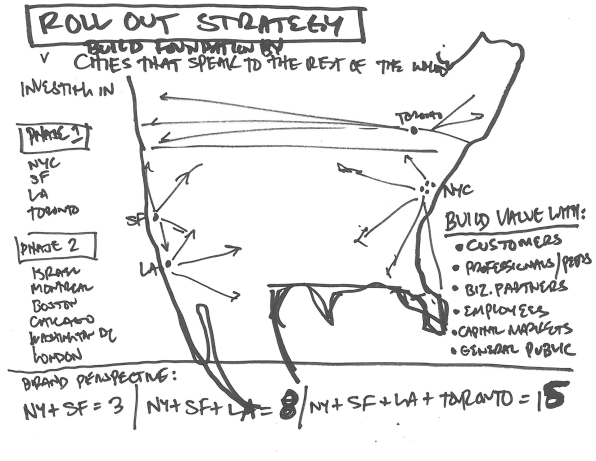 ROLL OUT STRATEGY
BUILD FOUNDATION BY
CITIES THAT SPEAK TO THE REST OF THE WORLD
INVESTING IN
PHASE 1
NYC
SF
LA
TORONTO
PHASE 2
ISRAEL
MONTREAL
BOSTON
CHICAGO
WASHINGTON DC
LONDON
TORONTO
NYC
SF
LA
BUILD VALUE WITH:
• CUSTOMERS
• PROFESSIONALS/PEERS
• BIZ. PARTNERS
• EMPLOYEES
• CAPITAL MARKETS
• GENERAL PUBLIC
BRAND PERSPECTIVE:
NY + SF = 3 / NY + SF + LA = 8 / NY + SF + LA + TORONTO = 15